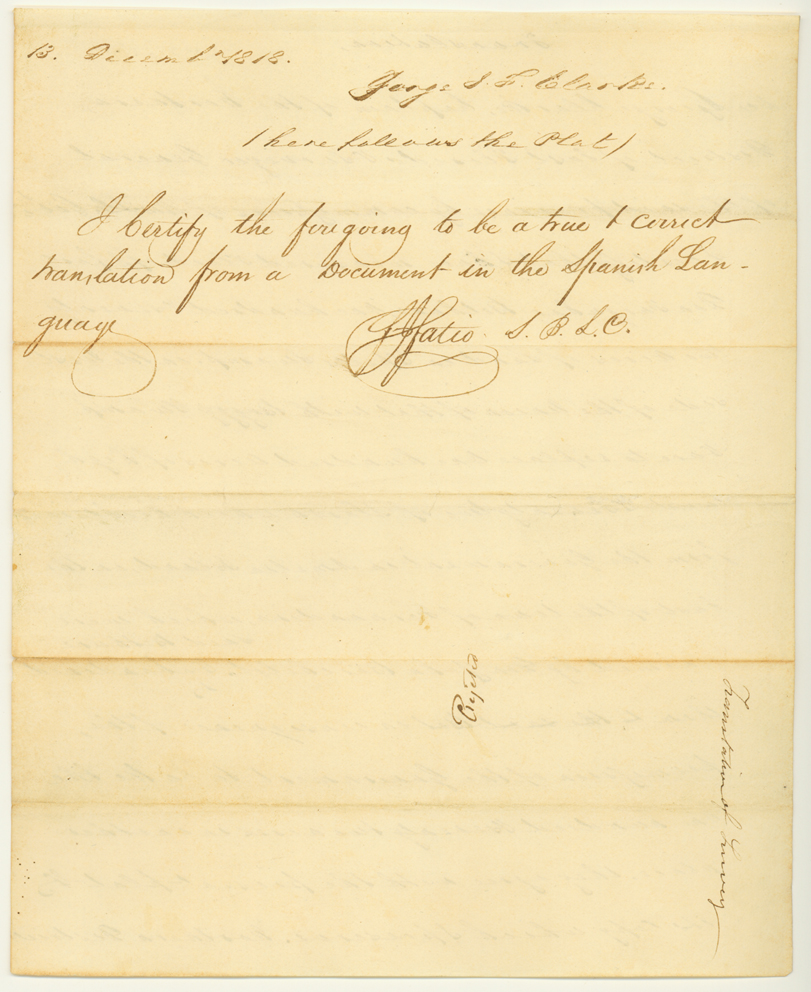 13. Decembr 1818.
George J. F. Clarke.
(here follows the Plat)
I Certify the foregoing to be a true & correct
translation from a Document in the Spanish Lan-
guage
FJFatio S. B. L. C.
Translation of Survey